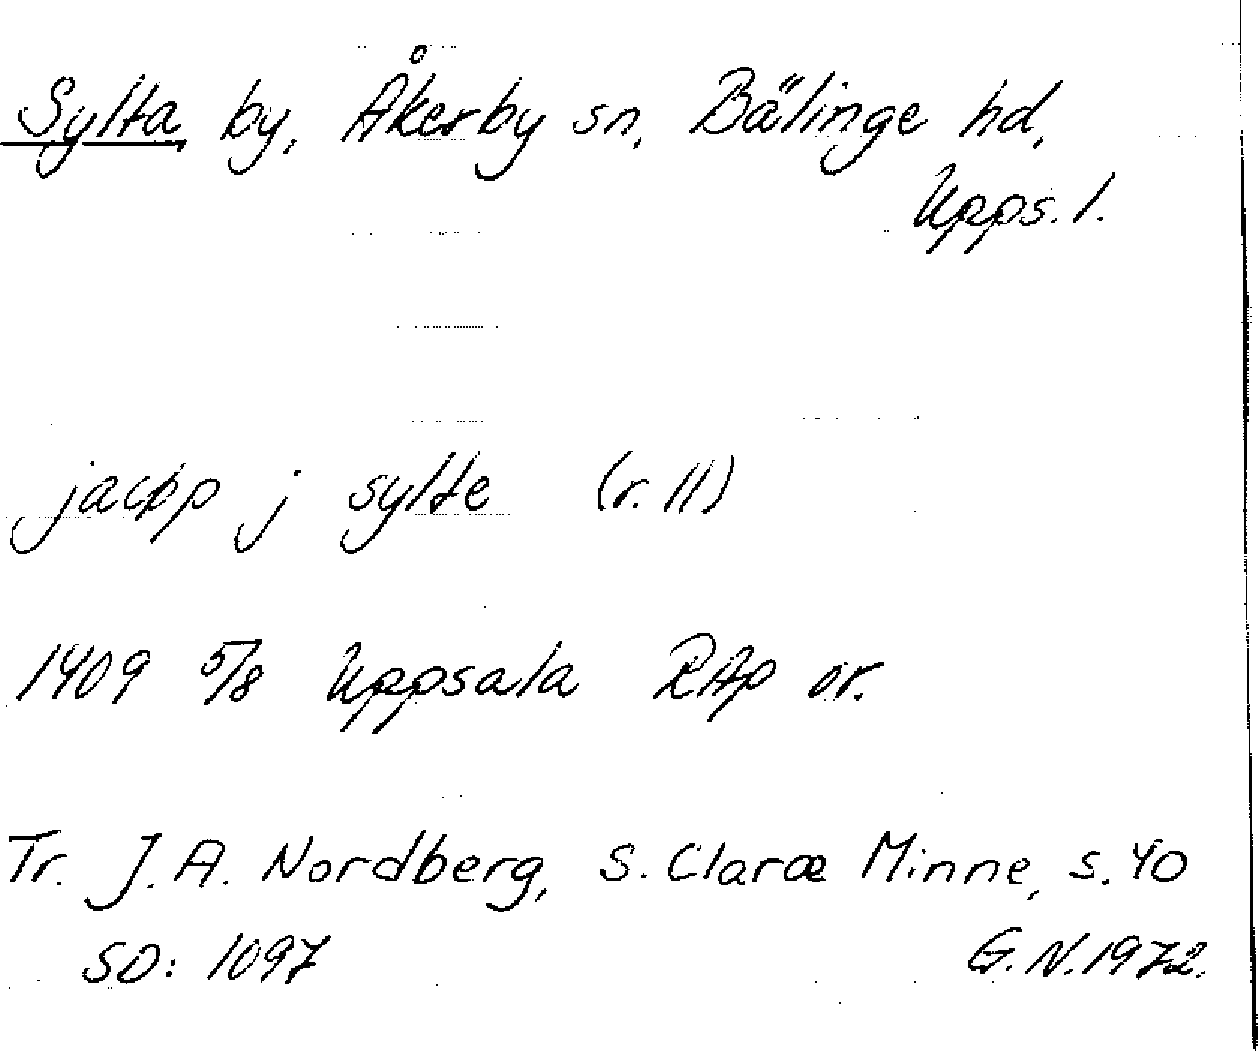 Sylta by, Åkerby sn, Bälinge hd,
Upps. l.
jacpp j sylte (r. 11)
1409 5/8 Uppsala RAp or.
Tr. J.A. Nordberg, S. Claræ Minne, s. 40
SD: 1097 G.N. 1972.